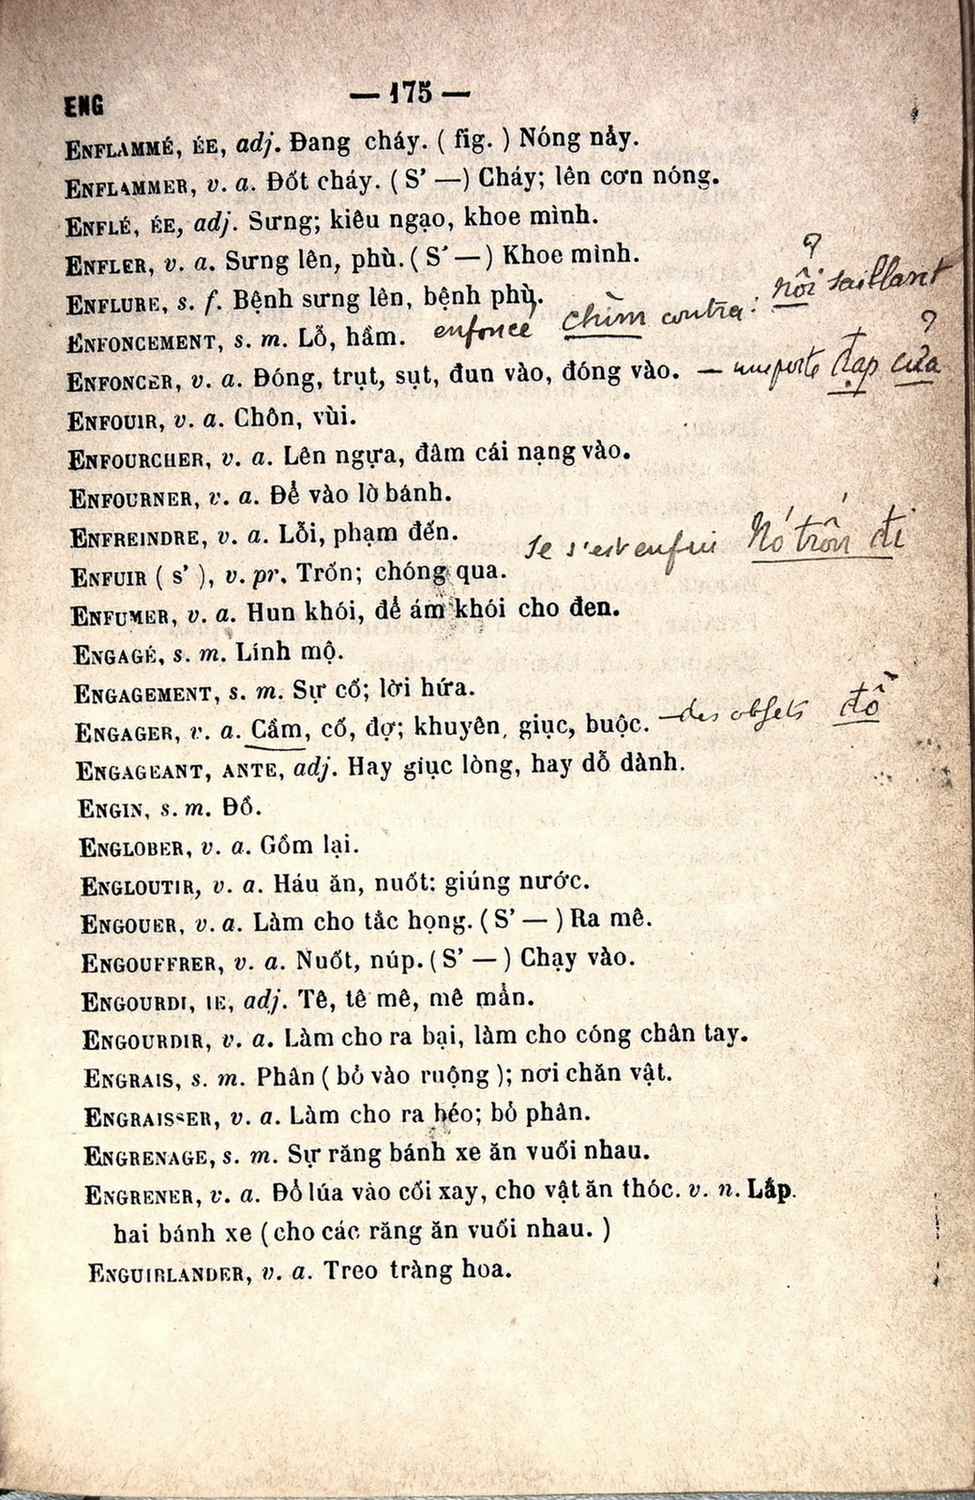 ENG — 175 —
ENFLAMMÉ, ÉE, adj. Đang cháy. ( fig. ) Nóng nảy.
ENFLAMMER, v. a. Đốt cháy. ( S’ —) Cháy; lên cơn nóng.
ENFLÉ, ÉE, adj. Sưng; kiêu ngạo, khoe mình.
ENFLER, v. a. Sưng lên, phù. ( S’ — ) Khoe mình.
ENFLURE, s. f. Bệnh sưng lên, bệnh phù.
ENFONCEMENT, s. m. Lỗ, hầm. enfoncé chìm contra: nổi saillant
ENFONCER, v. a. Đóng, trụt, sụt, đun vào, đóng vào. — une porte đạp cửa
ENFOUIR, v. a. Chôn, vùi.
ENFOURCHER, v. a. Lên ngựa, đâm cái nạng vào.
ENFOURNER, v. a. Để vào lò bánh.
ENFREINDRE, v. a. Lỗi, phạm đến.
ENFUIR ( S’ ), v. pr. Trốn; chóng qua. se s'est enfui Nó trốn đi
ENFUMER, v. a. Hun khói, để ám khói cho đen.
ENGAGÉ, s. m. Lính mộ.
ENGAGEMENT, s. m. Sự cố; lời hứa.
ENGAGER, v. a. Cầm, cố, đợ; khuyên, giục, buộc. — des objets đồ
ENGAGEANT, ANTE, adj. Hay giục lòng, hay dỗ dành.
ENGIN, s. m. Đồ.
ENGLOBER, v. a. Gồm lại.
ENGLOUTIR, v. a. Háu ăn, nuốt: giúng nước.
ENGOUER, v. a. Làm cho tắc họng. ( S’ — ) Ra mê.
ENGOUFFRER, v. a. Nuốt, núp. ( S’ — ) Chạy vào.
ENGOURDI, IE, adj. Tê, tê mê, mê mẩn.
ENGOURDIR, v. a. Làm cho ra bại, làm cho cóng chân tay.
ENGRAIS, s. m. Phân ( bỏ vào ruộng ); nơi chăn vật.
ENGRAISSER, v. a. Làm cho ra béo; bỏ phân.
ENGRENAGE, s. m. Sự răng bánh xe ăn vuối nhau.
ENGRENER, v. a. Đổ lúa vào cối xay, cho vật ăn thóc. v. n. Lắp.
hai bánh xe ( cho các răng ăn vuối nhau. )
ENGUIRLANDER, v. a. Treo tràng hoa.